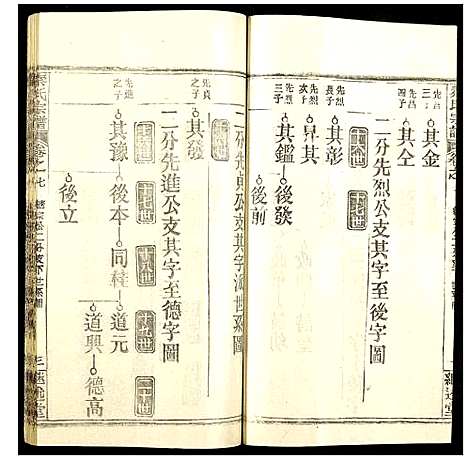 先昌三子
其金
先昌四子
其全
二分先烈公支其字至後字圖
先烈長子
其彰
先烈次子
昇其
先烈三子
其鑑
後發
後前
二分先貞公支其字派世系圖
先貞之子
其發
二分先進公支其字至德字圖
十六世
十七世
十八世
十九世
二十世
先進之子
其豫
後本
同
道元
道興
德高
後立